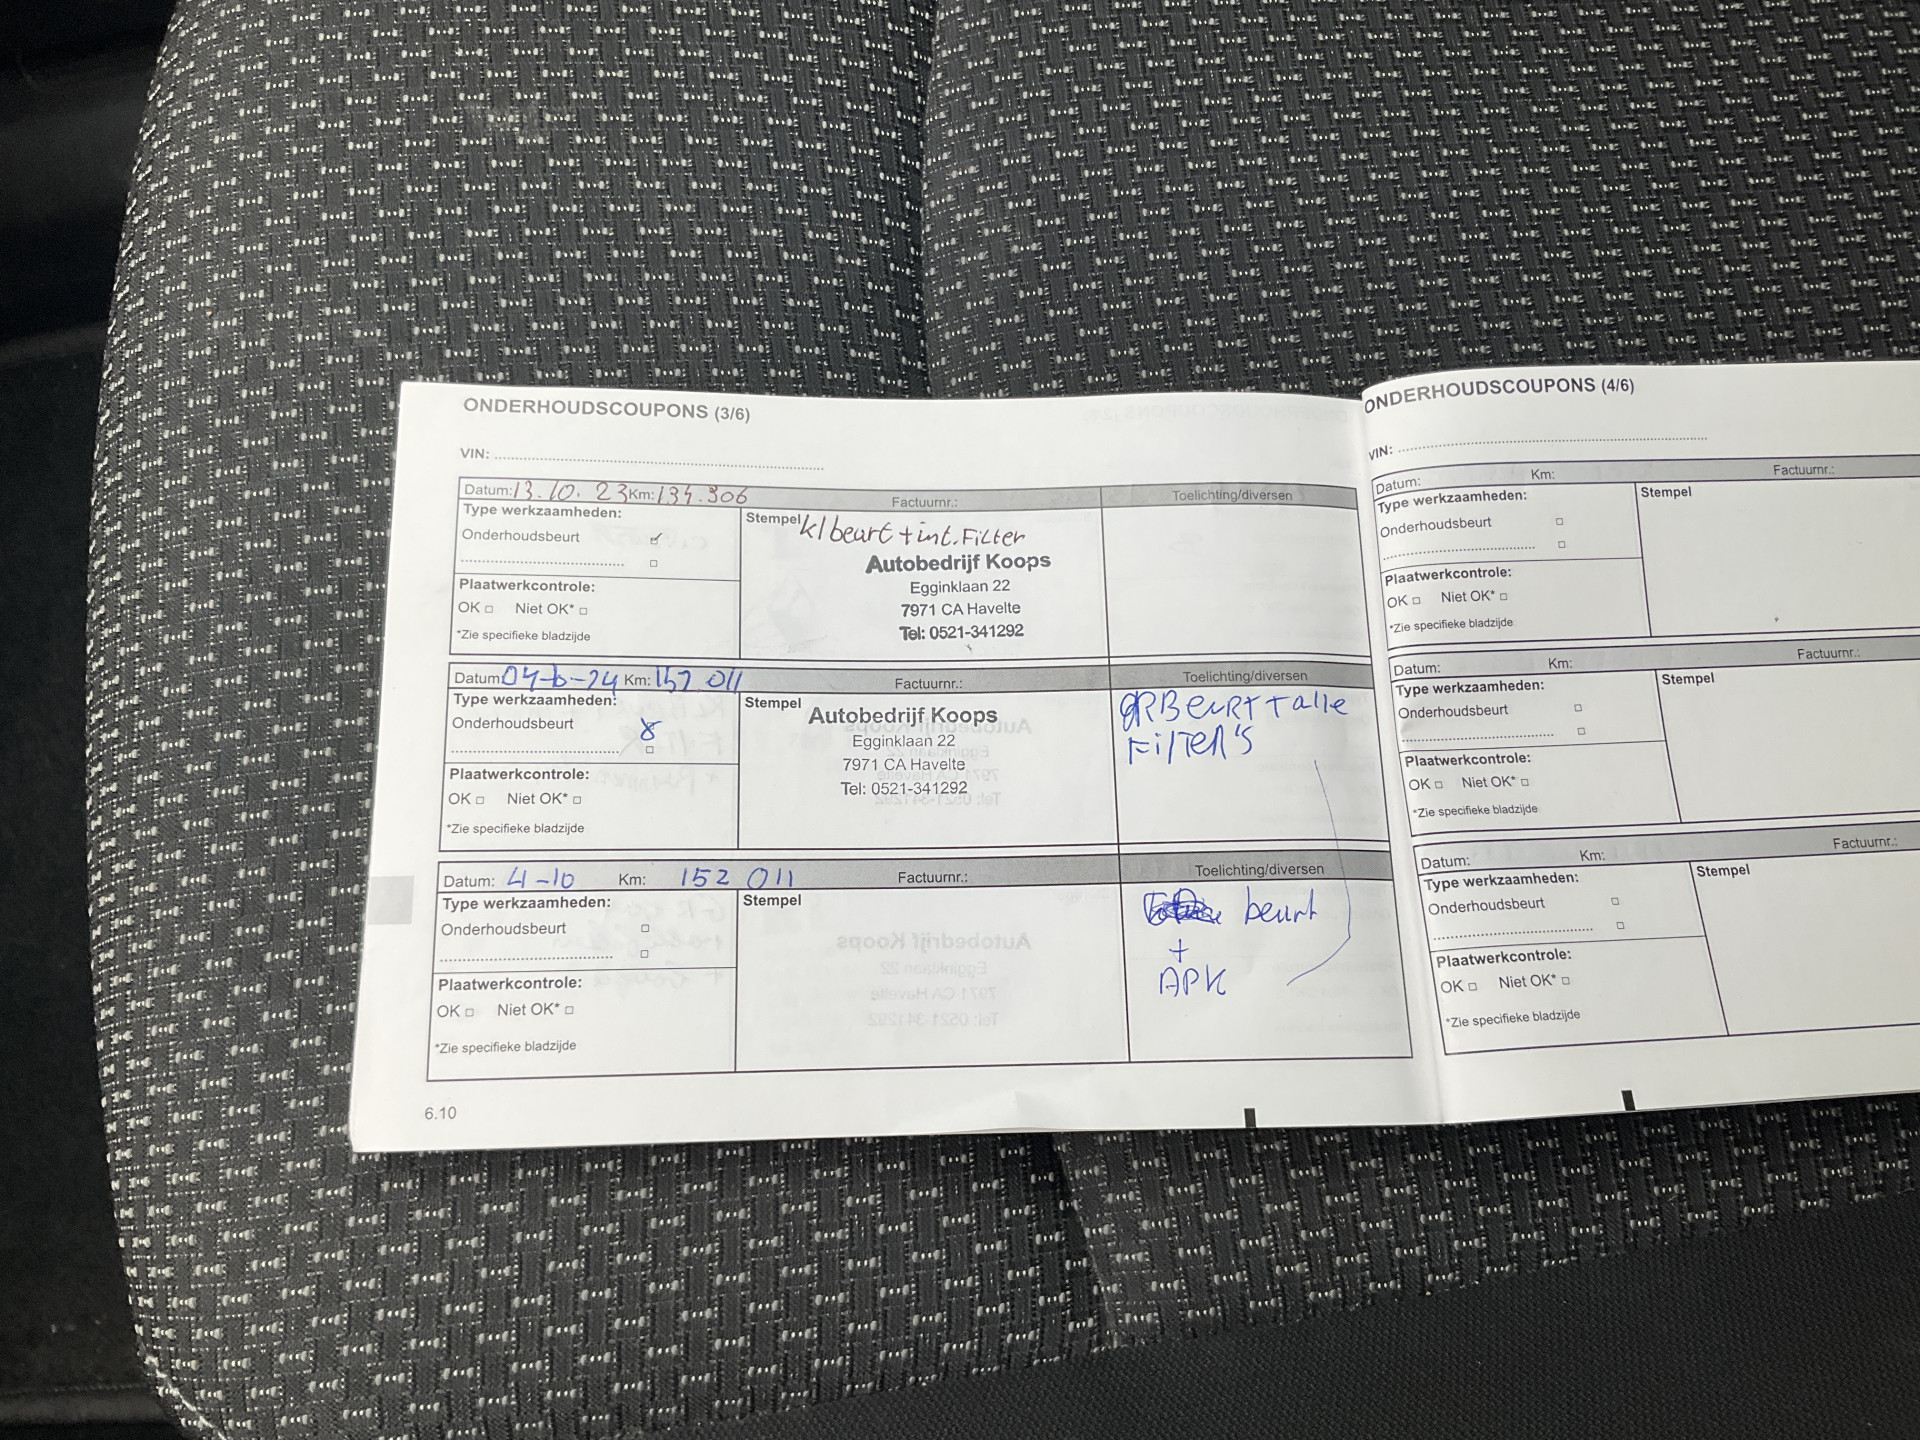 ONDERHOUDSCOUPONS (3/6)
VIN:
Datum: 13.10.23 Km: 134.306 Factuurnr.: Toelichting/diversen
Type werkzaamheden:
Onderhoudsbeurt
Stempel kl beurt + int. Filter
Autobedrijf Koops
Egginklaan 22
7971 CA Havelte
Tel: 0521-341292
Plaatwerkcontrole:
OK Niet OK*
*Zie specifieke bladzijde
Datum: Km: 152 011 Factuurnr.: Toelichting/diversen
Type werkzaamheden:
Onderhoudsbeurt
Stempel
Autobedrijf Koops
Egginklaan 22
7971 CA Havelte
Tel: 0521-341292
GRBeurt + alle
Filter's
Plaatwerkcontrole:
OK Niet OK*
*Zie specifieke bladzijde
Datum: 4-10 Km: 152 011 Factuurnr.: Toelichting/diversen
Type werkzaamheden:
Onderhoudsbeurt
Stempel
beurt
+
APK
Plaatwerkcontrole:
OK Niet OK*
*Zie specifieke bladzijde
6.10
ONDERHOUDSCOUPONS (4/6)
VIN:
Datum: Km: Factuurnr.:
Type werkzaamheden:
Onderhoudsbeurt
Stempel
Plaatwerkcontrole:
OK Niet OK*
*Zie specifieke bladzijde
Datum: Km: Factuurnr.:
Type werkzaamheden:
Onderhoudsbeurt
Stempel
Plaatwerkcontrole:
OK Niet OK*
*Zie specifieke bladzijde
Datum: Km: Factuurnr.:
Type werkzaamheden:
Onderhoudsbeurt
Stempel
Plaatwerkcontrole:
OK Niet OK*
*Zie specifieke bladzijde